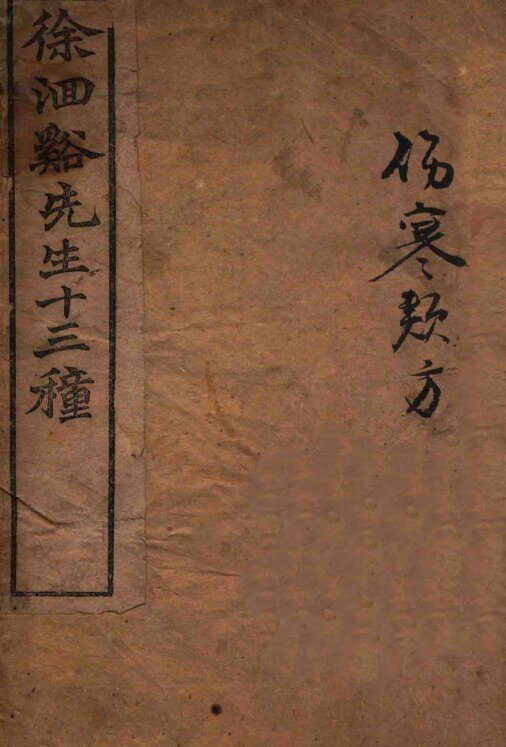 伤寒類方
徐洄谿先生十三種